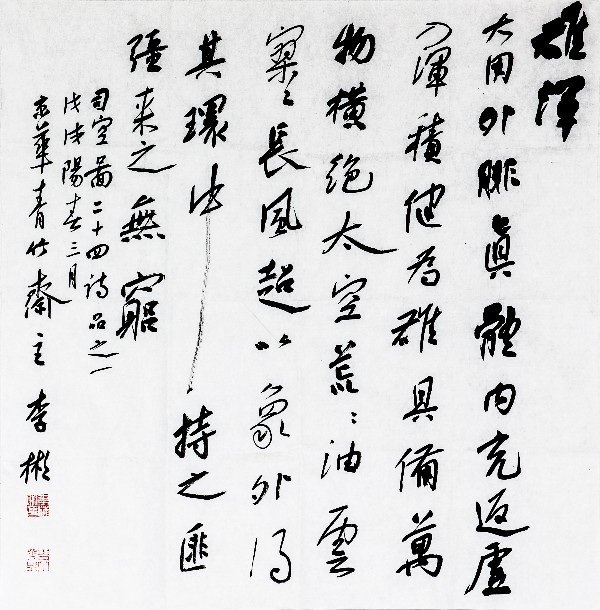 雄渾
大用外腓眞體內充返虛
入渾積健為雄具備萬
物橫絕太空荒〻油雲
寥〻長風超以象外得
其環中持之匪
強来之無窮
司空圖二十四詩品之一
戊戌陽春三月
京華青竹齋主李彬